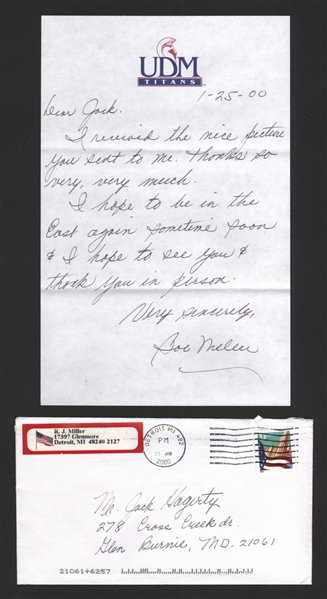 UDM
TITANS
1-25-00
Dear Jack.
I received the nice picture
you sent to me. Thanks so
very, very much.
I hope to be in the
East again sometime soon
& I hope to see you &
thank you in person.
Very sincerely,
Bob Miller
R. J. Miller
17397 Glenmore
Detroit, MI 48240 2127
DETROIT MI 482
PM
JAN
2000
Mr. Jack Hagerty
278 Cross Creek dr.
Glen Burnie, MD. 21061
21061+6257